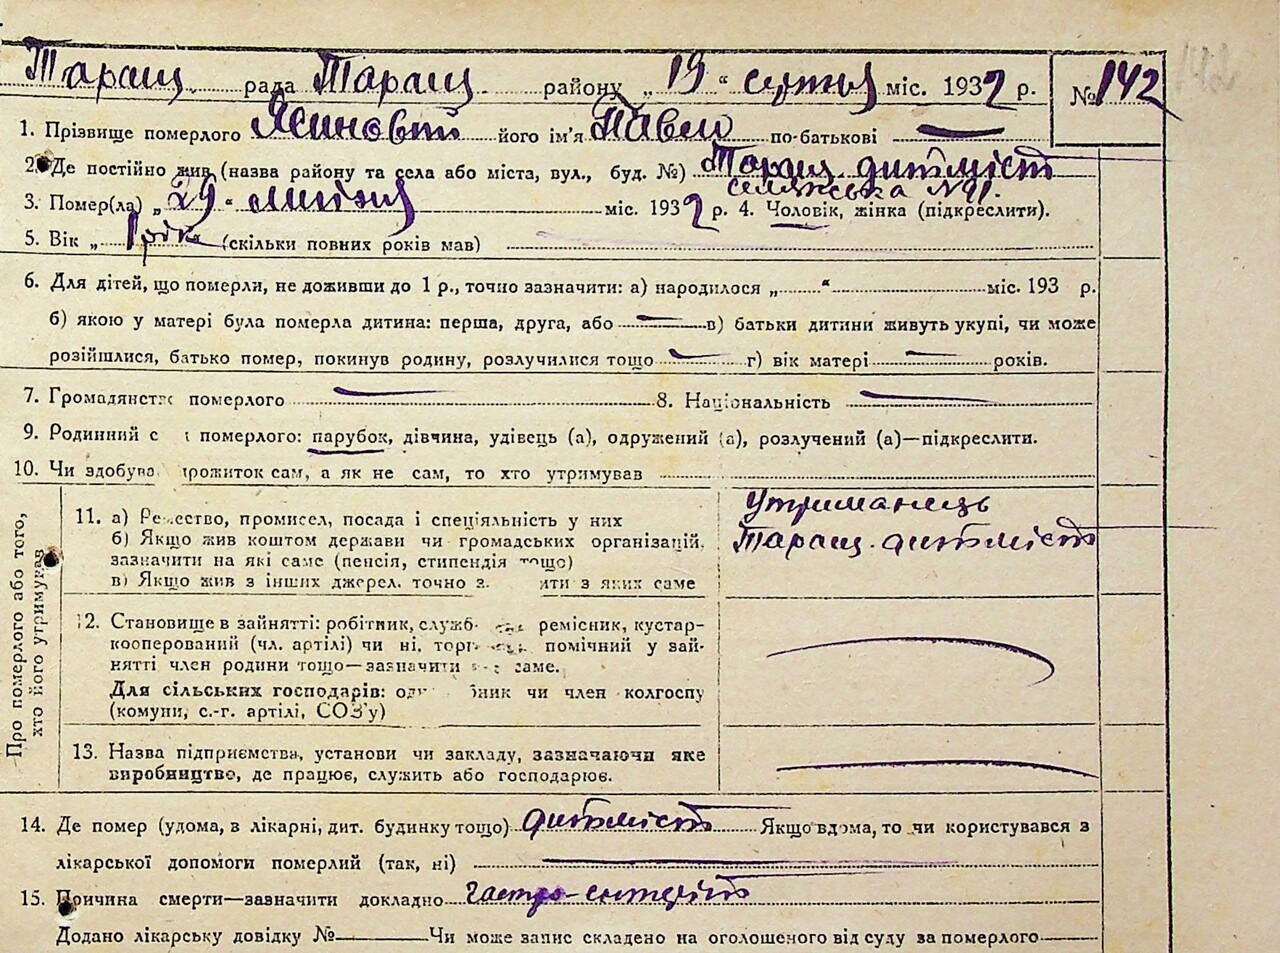 Таращ. рада Таращ. району „ 19 “ серпня міс. 1932 р. № 142 142
1. Прізвище померлого його ім'я Павло по-батькові —
2. Де постійно жив (назва району та села або міста, вул., буд. №) Таращ. дитмісто
№ 91.
3. Помер(ла) „ 29 “ липня міс. 1932 р. 4. Чоловік, жінка (підкреслити).
5. Вік „ 1 рік “ (скільки повних років мав)
6. Для дітей, що померли, не доживши до 1 р., точно зазначити: а) народилося „ “ міс. 193 р.
б) якою у матері була померла дитина: перша, друга, або — в) батьки дитини живуть укупі, чи може
розійшлися, батько помер, покинув родину, розлучилися тощо — г) вік матері — років.
7. Громадянств померлого — 8. Національність —
9. Родинний с померлого: парубок, дівчина, удівець (а), одружений (а), розлучений (а)—підкреслити.
10. Чи здобува прожиток сам, а як не сам, то хто утримував
Про померлого або того,
хто його утримував
11. а) Ремество, промисел, посада і спеціяльність у них
б) Якщо жив коштом держави чи громадських організацій,
зазначити на які саме (пенсія, стипендія тощо)
в) Якщо жив з інших джерел, точно з ити з яких саме
Утриманець
Таращ. дитмісто
12. Становище в зайнятті: робітник, служб ремісник, кустар-
кооперований (чл. артілі) чи ні, торг помічний у зай-
нятті член родини тощо—зазначити саме.
Для сільських господарів: од бник чи член колгоспу
(комуни, с.-г. артілі, СОЗ'у)
13. Назва підприємства, установи чи закладу, зазначаючи яке
виробництво, де працює, служить або господарює.
14. Де помер (удома, в лікарні, дит. будинку тощо) дитмісто Якщо вдома, то чи користувався з
лікарської допомоги померлий (так, ні)
15. Причина смерти—зазначити докладно гастро-ентеріт
Додано лікарську довідку № Чи може запис складено на оголошеного від суду за померлого